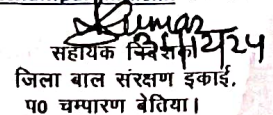 Kumar
21/12/24
सहायक निदेशक
जिला बाल संरक्षण इकाई,
प० चम्पारण बेतिया।